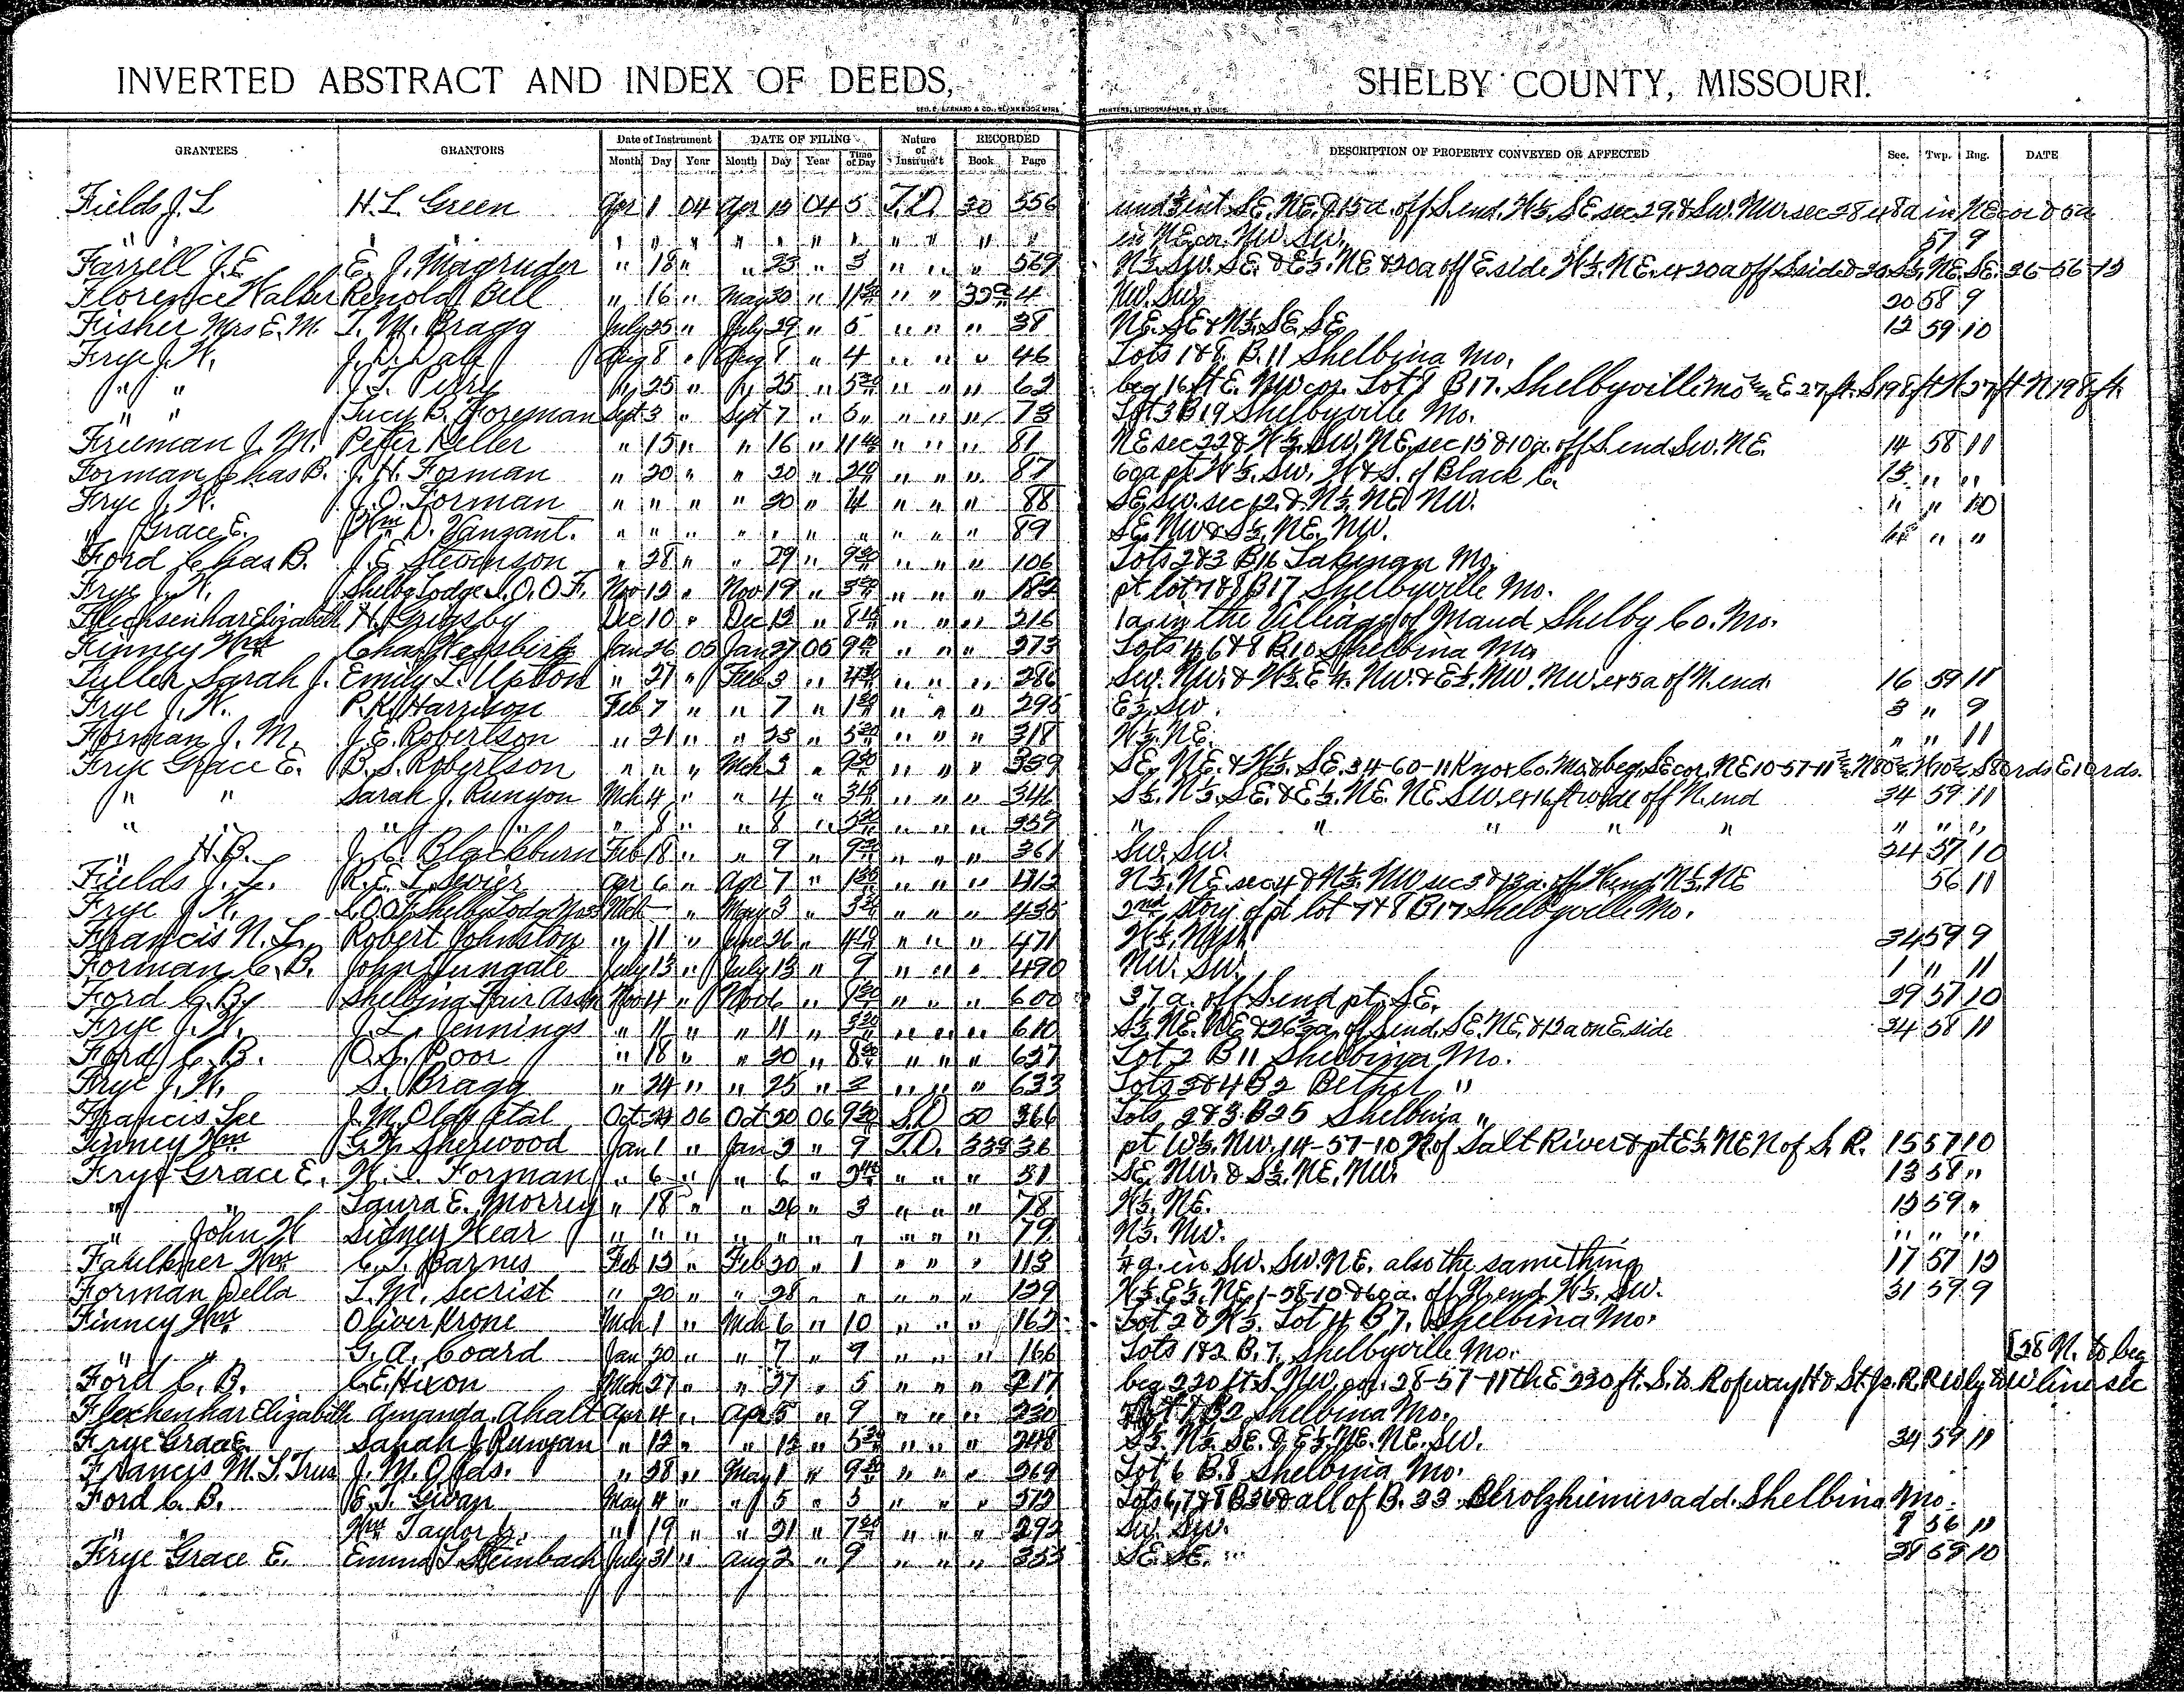 INVERTED ABSTRACT AND INDEX OF DEEDS, SHELBY COUNTY, MISSOURI.
GRANTEES GRANTORS Date of Instrument DATE OF FILING Nature of Instrum't RECORDED DESCRIPTION OF PROPERTY CONVEYED OR AFFECTED Sec. Twp. Rng. DATE
Month Day Year Month Day Year Time of Day Book Page
Fields J. L H. L. Green Apr 1 04 Apr 15 04 5 T.D. 30 556 SE. NE. 15a. off S. end. W½. SE. sec. 29. & SW. NW. sec 28 8a in NE cor & 5a
" " " " " " " " " " " " in NE cor. NW. SW. 57 9
Farrell J. E E. J. Magruder " 18 " " 23 " 3 " " " 569 N½. SW. SE. & E½. NE & 20a off E. side W½. NE. 36-56-12
Florence Walker Renola Bill " 16 " May 30 " " " 4 NW. SW. 20 58 9
Fisher Mrs E. M. T. M. Bragg July 25 " July 29 " 5 " " " 38 NE. SE & N½. SE. SE 12 59 10
Frye J. W. Aug 8 " Aug 8 " 4 " " " 46 Lots 1&8. B. 11 Shelbina Mo.
" " J. T. Perry " 25 " " 25 " 5 " " " 62 beg 16 ft E. NW cor. Lot 1 B 17. Shelbyville Mo E 27 ft. S 198 ft W 27 ft N 198 ft.
" " Lucy B. Foreman Sept 3 " Sept 7 " 5 " " " 73 Lot 3 B 19 Shelbyville Mo.
Freeman J. M. Peter Keller " 15 " " 16 " " " " 81 NE sec 22 & W½. SW. NE. sec 15 & 10a. off S. end. SW. NE. 14 58 11
Forman Chas B. J. H. Forman " 20 " " 20 " " " " 87 60a pt W½. SW. W & S. of Black C. 13 " "
Frye J. W. J. O. Forman " " " " 20 " 4 " " " 88 SE. SW. sec 12. & N½. NE. NW. " " 10
" Grace E. Wm D. Vanzant. " " " " " " " " " " 89 SE. NW & S½. NE. NW. " "
Ford Chas B. J. E. Stevinson " 28 " " 29 " 9 " " " 106 Lots 2&3 B 16 Lakenan Mo.
Frye J. W. Shelby Lodge I. O. O. F. Nov 12 " Nov 19 " " " " 182 pt lot 7&8 B 17 Shelbyville Mo.
Flechsenhar Elizabeth H. Grigsby Dec 10 " Dec 13 " 8 " " " 216 1a. in the Village of Maud Shelby Co. Mo.
Finney Wm Jan 26 05 Jan 27 05 9 " " " 273 Lots 4, 6&8 B 10 Shelbina Mo
Fuller Sarah J. Emily L. Upton " 21 " Feb 3 " 4 " " " 286 SW. NW. & W½. E½. NW. & E½. NW. NW. ex 5a of N. end. 16 59 11
Frye J. W. P. R. Harrison Feb 7 " " 7 " 1 " " " 295 E½. SW. 3 " 9
Forman J. M. J. E. Robertson " 21 " " 23 " 5 " " " 318 W½. NE. " " 11
Frye Grace E. B. S. Robertson " " " Mch 3 " 9 " " " 339 SE. NE. & W½. SE. 34-60-11 Knox Co. Mo. & beg. SE cor. NE 10-57-11 S 80 rds E 10 rds.
" " Sarah J. Runyon Mch 4 " " 4 " 3 " " " 344 S½. N½. SE. & E½. NE. NE SW. ex 16 ft wide off N. end 34 59 11
" " " " " 8 " " 8 " " " " 357 " " " " " " " "
" H. B. J. C. Blackburn Feb 18 " " 9 " 9 " " " 361 SW. SW. 24 57 10
Fields J. L. R. E. L. Sevier Apr 6 " Apr 7 " 1 " " " 413 N½. NE. sec 4 & N½. NW sec 3 & 13a. off W. end. N½. NE 56 11
Frye J. W. I. O. O. F. Shelby Lodge Mch — " May 3 " 3 " " " 435 2nd story of pt lot 7&8 B 17 Shelbyville Mo.
Francis N. L. Robert Johnston " 11 " June 26 " 4 " " " 471 34 59 9
Forman C. B. John Dungate July 13 " July 13 " 9 " " " 490 NW. SW. 1 " 11
Ford C. B. Shelbina Fair Assn Nov 4 " Nov 6 " 1 " " " 600 37 a. off S. end pt. SE. 29 57 10
Frye J. W. J. L. Jennings " 11 " " 11 " " " " 610 S½. NE. NE & 26 a. off S. end. SE. NE. & 13 a on E. side 34 58 11
Ford C. B. O. L. Poor " 18 " " 20 " 8 " " " 627 Lot 2 B 11 Shelbina Mo.
Frye J. W. S. Bragg " 24 " " 25 " 2 " " " 633 Lots 3&4 B 2 Bethel "
Francis Lee J. M. Olds et al Oct 06 Oct 30 06 9 S.D 50 366 Lots 2&3. B 25 Shelbina "
Finney Wm G. W. Sherwood Jan 1 " Jan 2 " 9 T.D. 36 pt W½. NW. 14-57-10 N. of Salt River & pt E½. NE N of S. R. 15 57 10
Frye Grace E. W. T. Forman " 6 " " 6 " " " " 51 SE. NW. & S½. NE. NW. 13 58 "
" " Laura E. Morrey " 18 " " 26 " 3 " " " 78 W½. NE. 13 59 "
" John W Sidney Hear " " " " " " " " " " 79 N½. NW. " " "
Faulkner Wm C. T. Barnes Feb 13 " Feb 20 " 1 " " " 113 a. in SW. SW. NE. also the same thing 17 57 12
Forman Della T. M. Secrist " 20 " " 28 " " " " " 139 W½. E½. NE. 1-58-10 & 60 a. off N. end. W½. SW. 31 59 9
Finney Wm Oliver Krone Mch 1 " Mch 6 " 10 " " " 162 Lot 2 & W½. Lot 4 B 7. Shelbina Mo.
" " G. A. Coard Jan 20 " " 7 " 9 " " " 166 Lots 1&2 B. 7. Shelbyville Mo. [28 N. to beg
Ford C. B. C. E. Hixon Mch 27 " " 27 " 5 " " " 217 beg 220 ft S. NW. cor. 28-57-11 th E 220 ft. S. to R of way H & St. Jo. R. R to W line sec
Flechenhar Elizabeth Amanda Ahalt Apr 4 " Apr 5 " 9 " " " 230 Lot 1 B 2 Shelbina Mo.
Frye Grace E. Sarah J. Runyan " 12 " " 12 " 5 " " " 248 S½. N½. SE. & E½. NE. NE. SW. 34 59 11
Francis M. L. Trus J. M. Olds. " 28 " May 1 " 9 " " " 269 Lot 6 B. 8 Shelbina Mo.
Ford C. B. E. T. Givan May 4 " " 5 " 5 " " " 273 Lots 6, 7&8 B 36 & all of B. 33 add. Shelbina. Mo.
" " Wm Taylor Jr. " 19 " " 21 " 7 " " " 292 SW. SW. 56
Frye Grace E. Emma L. Steinbach July 31 " Aug 2 " 9 " " " 353 SE. SE. 10